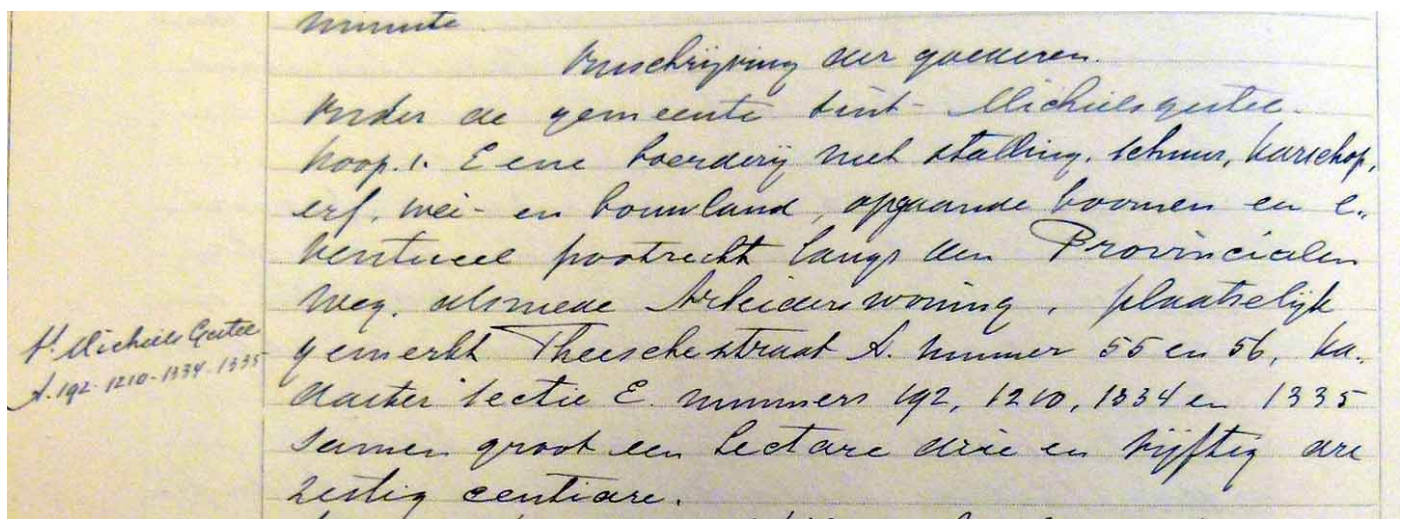 minute
Omschrijving der goederen.
Onder de gemeente Sint-Michielsgestel.
Koop. 1. Eene boerderij met stalling, schuur, karschop,
erf, wei- en bouwland, opgaande boomen en e-
ventueel pootrecht langs den Provincialen
weg, alsmede Arbeiderswoning, plaatselijk
St Michiels Gestel
gemerkt Theeschestraat A. nummer 55 en 56, ka-
A. 192-1210-1334-1335
daster sectie E. nummers 192, 1210, 1334 en 1335
samen groot een hectare drie en vijftig are
zestig centiare.